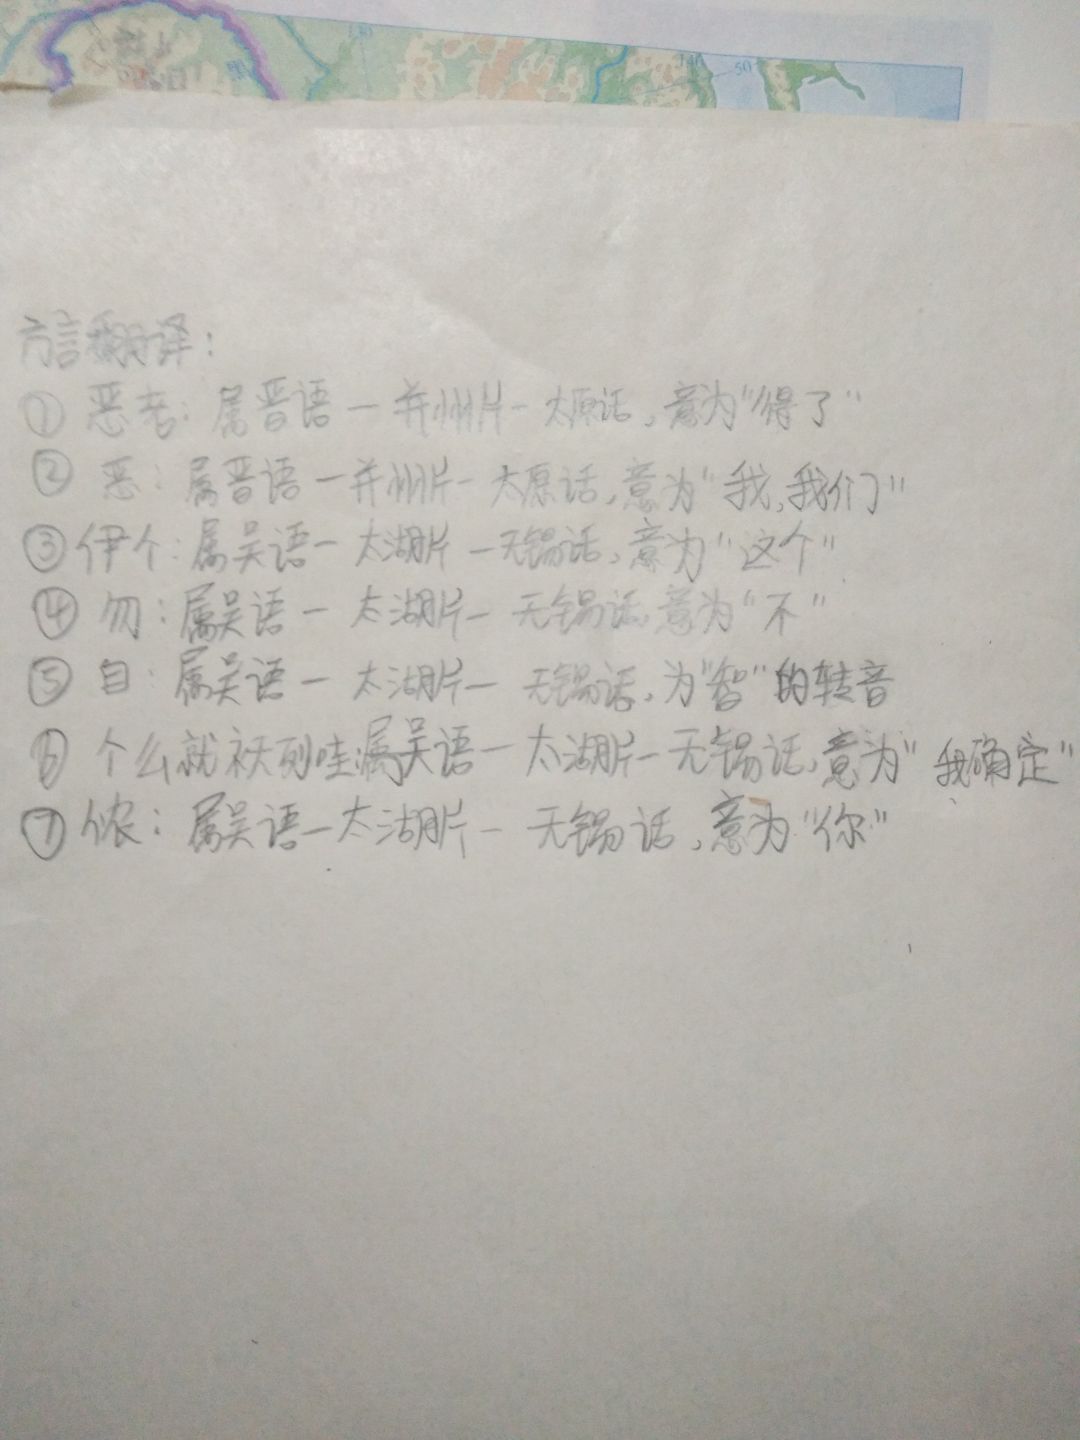 130
140
50
方言翻译：
① 恶老：属晋语－并州片－太原话，意为"得了"
② 恶：属晋语－并州片－太原话，意为"我，我们"
③ 伊个：属吴语－太湖片－无锡话，意为"这个"
④ 勿：属吴语－太湖片－无锡话，意为"不"
⑤ 自：属吴语－太湖片－无锡话，为"智"的转音
⑥ 个么就袄列哇：属吴语－太湖片－无锡话，意为"我确定"
⑦ 侬：属吴语－太湖片－无锡话，意为"你"